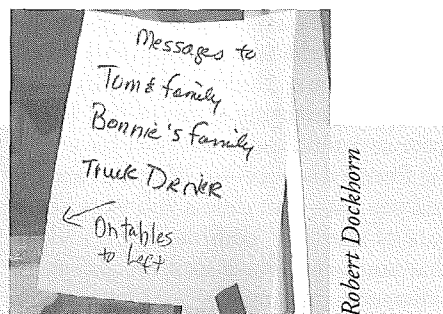 Messages to
Tom & family
Bonnie's Family
Truck Driver
On tables
to Left
Robert Dockhorn